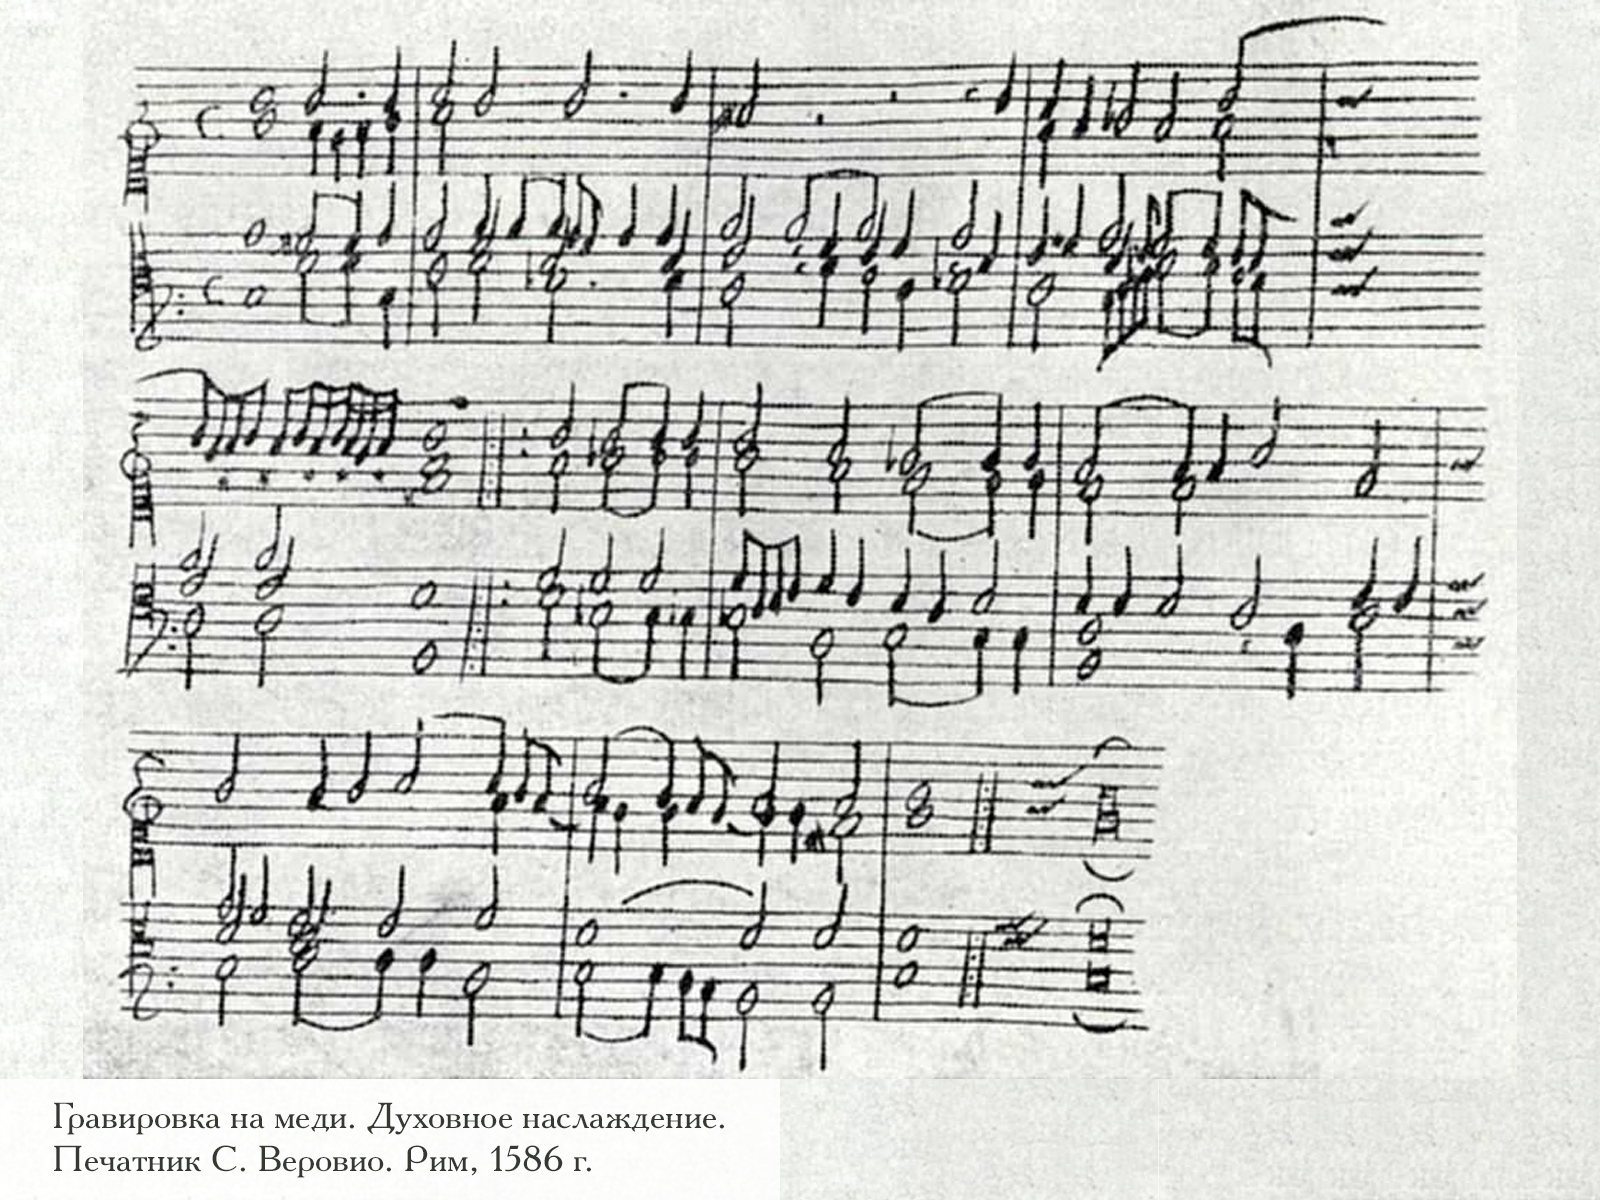 Гравировка на меди. Духовное наслаждение.
Печатник С. Веровио. Рим, 1586 г.